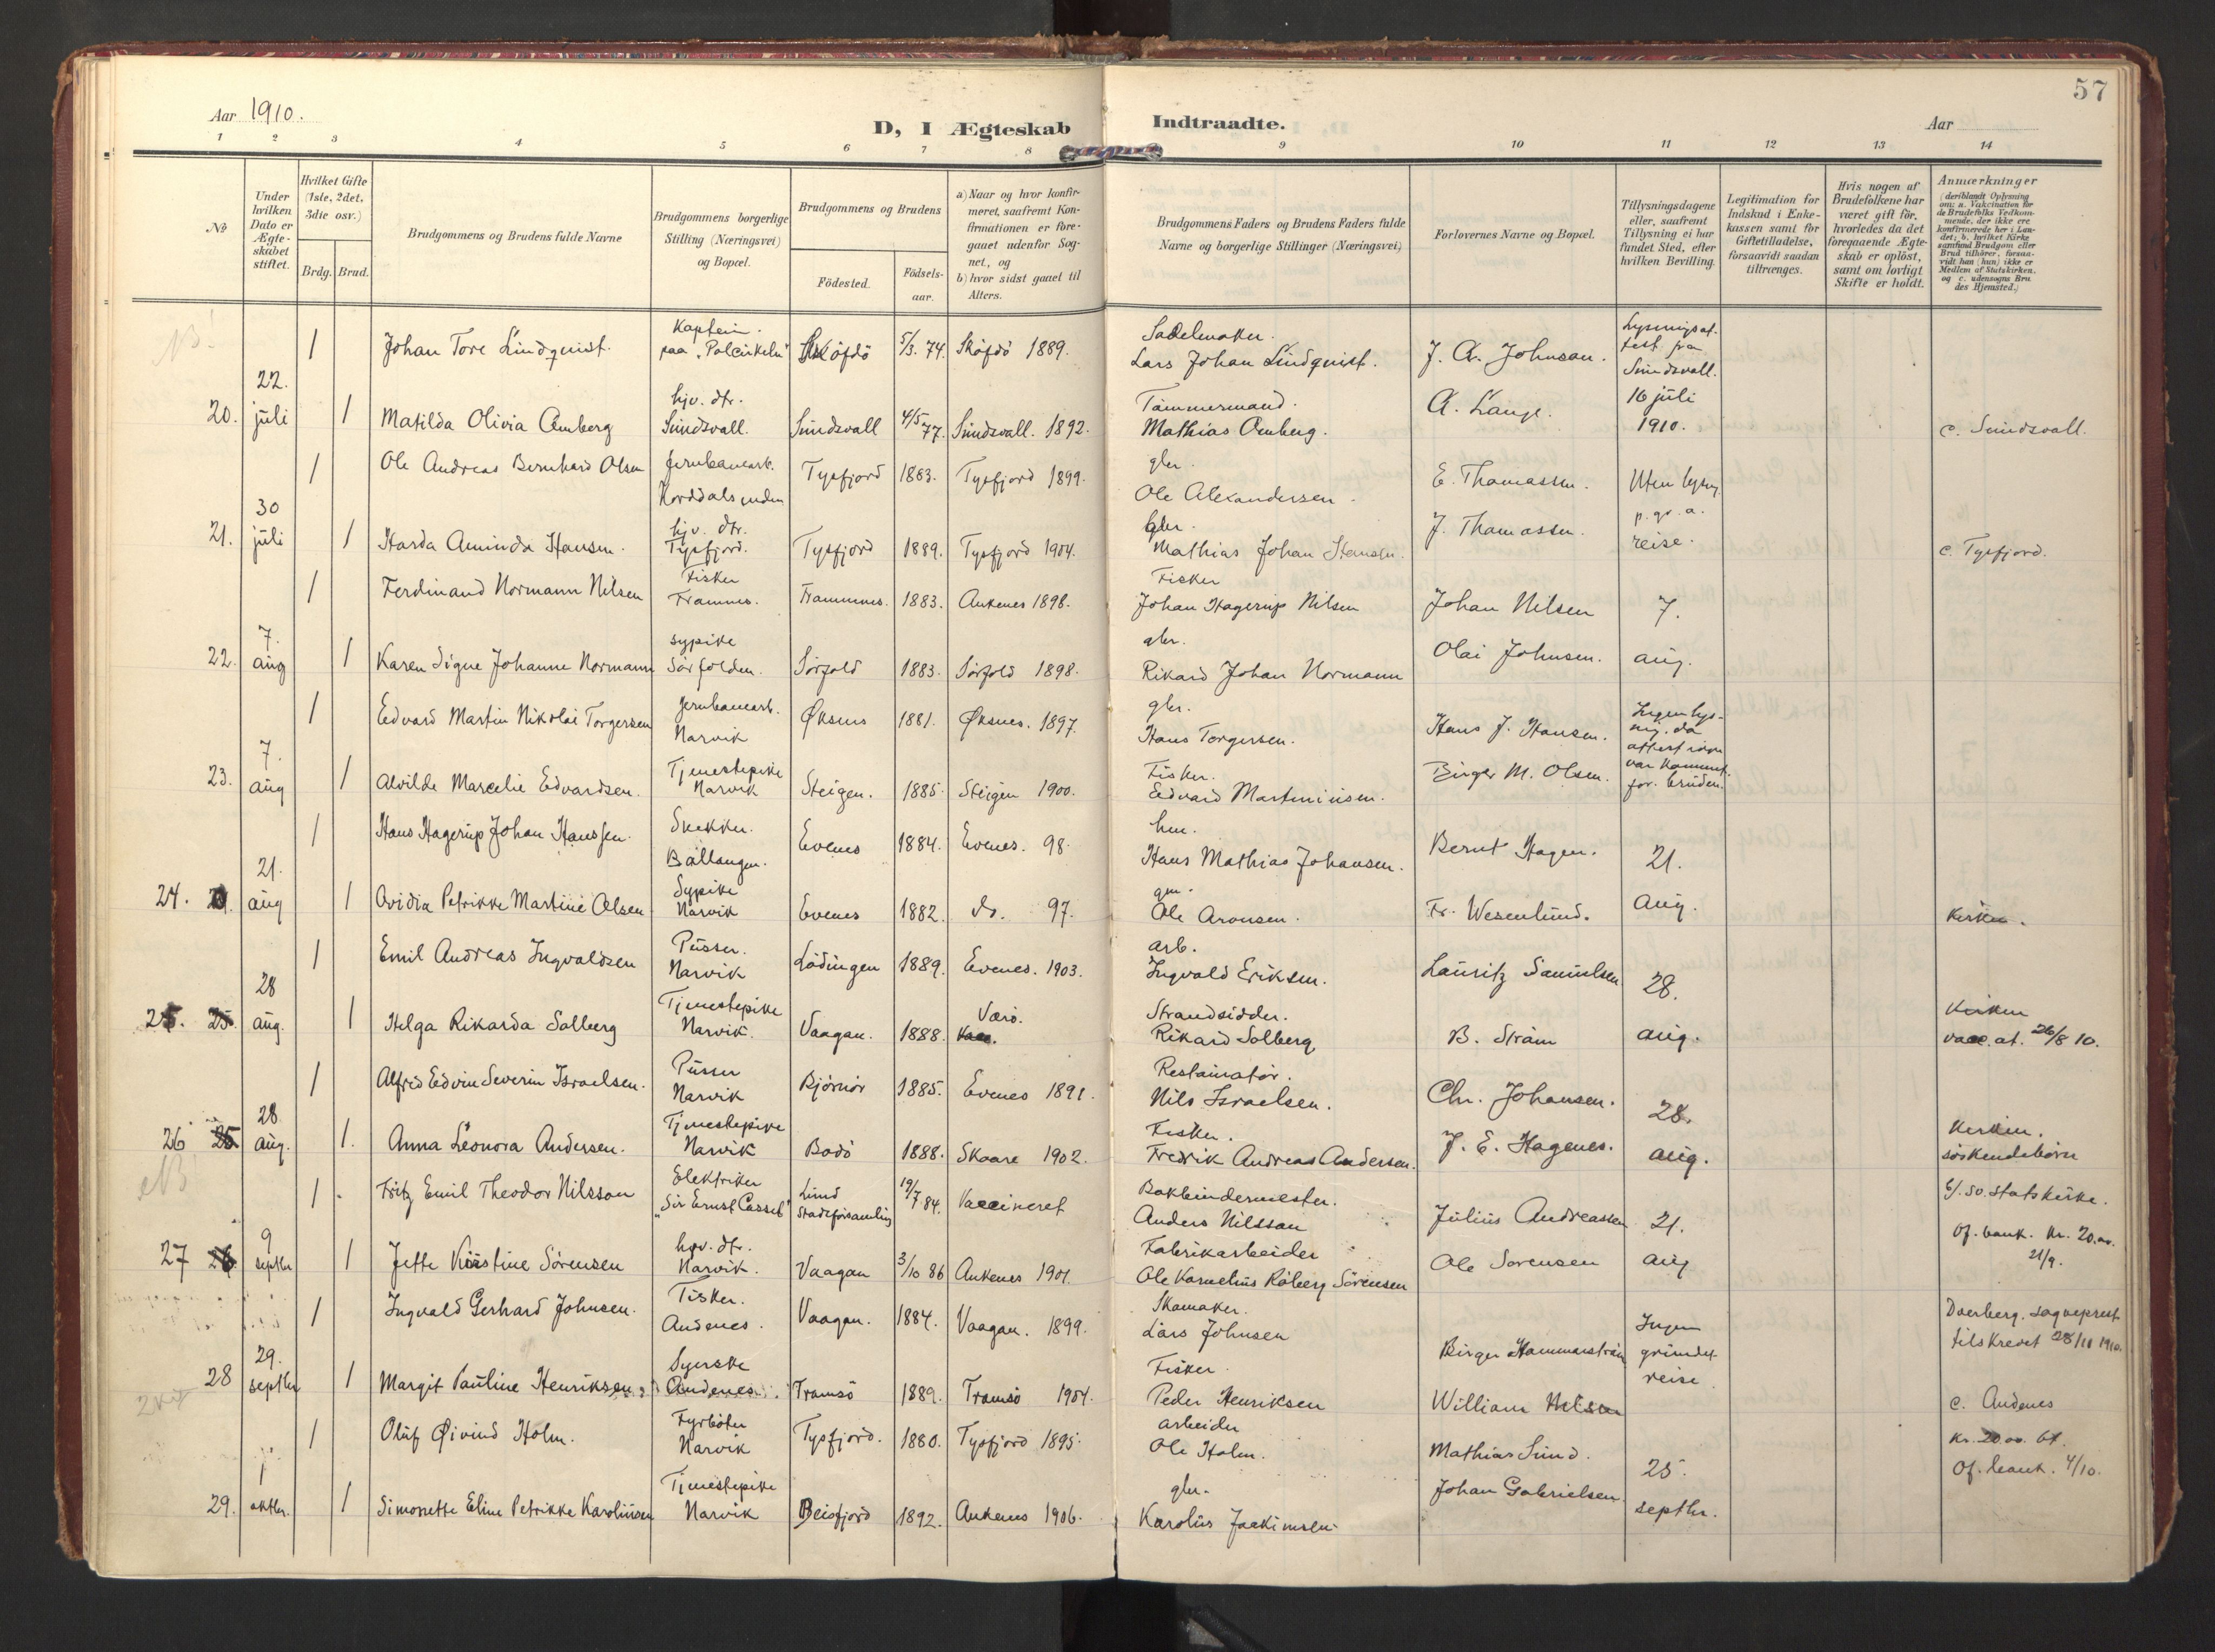 57
Aar 1910.
D, I Ægteskab Indtraadte.
Aar
1 2 3 4 5 6 7 8 9 10 11 12 13 14
No
Under hvilken Dato er Ægteskabet stiftet.
Hvilket Gifte (1ste, 2det, 3die osv.)
Brdg. Brud.
Brudgommens og Brudens fulde Navne
Brudgommens borgerlige Stilling (Næringsvei) og Bopæl.
Brudgommens og Brudens
Fødested.
Fødselsaar.
a) Naar og hvor konfirmeret, saafremt Konfirmationen er foregaaet udenfor Sognet, og
b) hvor sidst gaaet til Alters.
Brudgommens Faders og Brudens Faders fulde Navne og borgerlige Stillinger (Næringsvei)
Forlovernes Navne og Bopæl.
Tillysningsdagene eller, saafremt Tillysning ei har fundet Sted, efter hvilken Bevilling.
Legitimation for Indskud i Enkekassen samt for Giftetilladelse, forsaavidt saadan tiltrænges.
Hvis nogen af Brudefolkene har været gift før, hvorledes da det foregaaende Ægteskab er opløst, samt om lovligt Skifte er holdt.
Anmærkninger
(deriblandt Oplysning om: a. Vaccination for de Brudefolks Vedkommende, der ikke ere konfirmerede her i Landet; b. hvilket Kirkesamfund Brudgom eller Brud tilhører, forsaavidt han (hun) ikke er Medlem af Statskirken, og c. udensogns Brudes Hjemsted.)
1 Johan Tore Lindquist. Kaptein. paa "Polcirkeln" Sköfdö 5/3. 74. Sköfdö 1889. Sadelmaker. Lars Johan Lindquist. J. A. Johnson. Lysningsattest fra Sundsvall.
20. 22. juli 1 Matilda Olivia Amberg hjv. dtr. Sundsvall. Sundsvall 4/5 77. Sundsvall. 1892. Tømmermand. Mathias Amberg. A. Lange. 16 juli 1910. c. Sundsvall.
1 Ole Andreas Bernhard Olsen Jernbanearb. Tysfjord 1883. Tysfjord 1899. gbr. Ole Alexandersen. E. Thomassen. Uten lysng
21. 30 juli 1 Harda Aminda Hansen. hjv. dtr. Tysfjord. Tysfjord 1889. Tysfjord 1904. gbr. Mathias Johan Hansen. J. Thomassen. p. gr. a. reise. c. Tysfjord.
1 Ferdinand Normann Nilsen Fisker Framnes. Frammnes. 1883. Ankenes 1898. Fisker Johan Hagerup Nilsen Johan Nilsen 7.
22. 7. aug 1 Karen Signe Johanne Normann sypike Sørfolden. Sørfold 1883. Sørfold 1898. gbr. Rikard Johan Normann Olai Johnsen. aug.
1 Edvard Martin Nikolai Torgersen Jernbanearb. Narvik Øksnes 1881. Øksnes. 1897. gbr. Hans Torgersen. Hans J. Hansen. Ingen lysning, da attest
23. 7. aug 1 Alvilde Marcelie Edvardsen. Tjenestepike Narvik Steigen. 1885. Steigen 1900. Fisker. Edvard Martiniusen. Birger M. Olsen. var kommet for bruden.
1 Hans Hagerup Johan Hanssen. Snekker. Ballangen. Evenes 1884. Evenes. 98. Hans Mathias Johansen. Bernt Hagen. 21.
24. 21. aug 1 Ovidia Petrikke Martine Olsen Sypike Narvik Evenes 1882. do. 97. gm. Ole Aronsen. Fr. Wesenlund. aug. Kirken.
1 Emil Andreas Ingvaldsen Pusser. Narvik Lødingen 1889. Evenes. 1903. arb. Ingvald Eriksen. Lauritz Samuelsen 28.
25. 28 aug. 1 Helga Rikarda Solberg Tjenestepike Narvik. Vaagan. 1888. Værø. Strandsidder. Rikard Solberg B. Strøm aug. Kirken vacc. at. 26/8 10.
1 Alfred Edvin Severin Israelsen. Pusser Narvik Bjørnør 1885. Evenes 1891. Restauratør. Nils Israelsen. Chr. Johansen. 28.
26 28 aug. 1. Anna Leonora Andersen. Tjenestepike Narvik Bodö 1888. Skaare 1902. Fisker. Fredrik Andreas Andersen. J. E. Hagenes. aug. Kirken. söskendebörn
1. Fritz Emil Theodor Nilsson Elektriker "Sir Ernst Cassel" Lund Stadsforsamling 19/7 84. Vaccineret Bokbindermester. Anders Nilsson Julius Andreassen 21. b/. sv. statskirke.
27 9 septbr 1 Jette Kirstine Sørensen hjv. dtr. Narvik. Vaagan 3/10 86 Ankenes 1901. Fabrikarbeider Ole Kornelius Røberg Sørensen Ole Sørensen aug Of. bank. Kr. 20.00. 21/9.
1 Ingvald Gerhard Johnsen. Fisker. Andenes. Vaagan. 1884. Vaagan. 1899. Skomaker. Lars Johnsen Birger Hammerstrøm Ingen grundet Dverberg. sogneprest tilskrevet 28/11 1910.
28 29. septbr 1 Margit Pauline Henriksen Syerske Andenes Tromsö 1889. Tromsö 1904. Fisker Peder Henriksen William Nilsen reise c. Andenes
1 Oluf Øivind Holm. Fyrbøter Narvik Tysfjord. 1880. Tysfjord 1895. arbeider Ole Holm. Mathias Lund. 25. Kr. 20.00. bt.
29. 1 oktbr. 1 Simonette Eline Petrikke Karoliusen Tjenestepike Narvik Beisfjord 1892. Ankenes 1906. gbr. Karolius Joakimsen Johan Gabrielsen. septbr. Of. bank. 4/10.